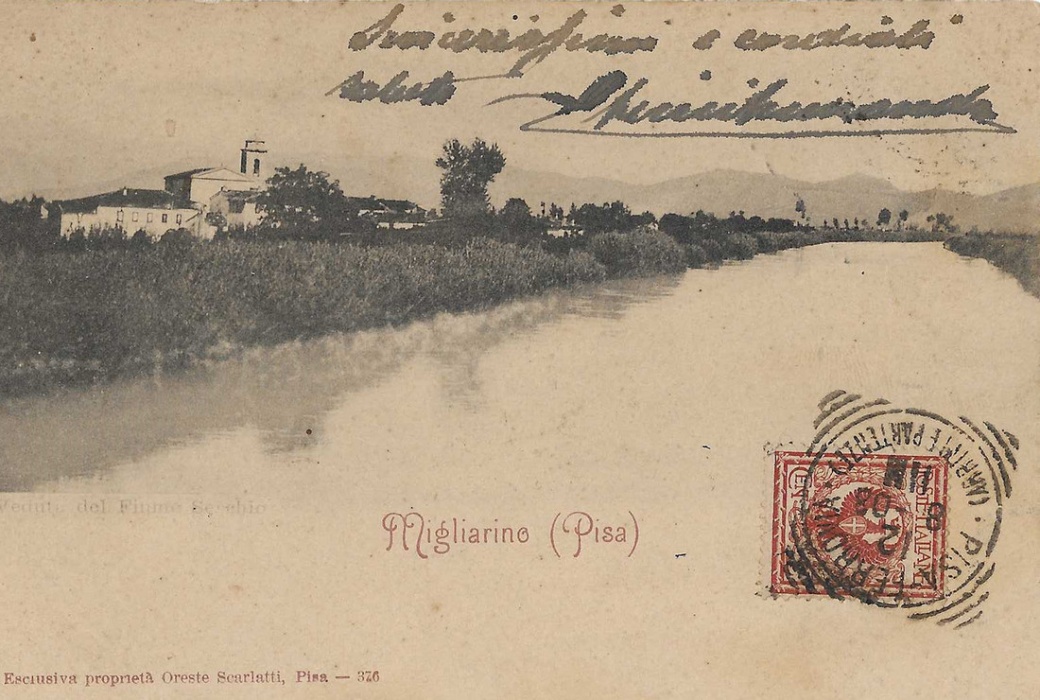 Sincerissimi e cordiali
saluti
Veduta del Fiume Serchio
Migliarino (Pisa)
POSTE ITALIANE
CENT
PISA FERROVIA
(ARRIVI E PARTENZE)
Esclusiva proprietà Oreste Scarlatti, Pisa — 376